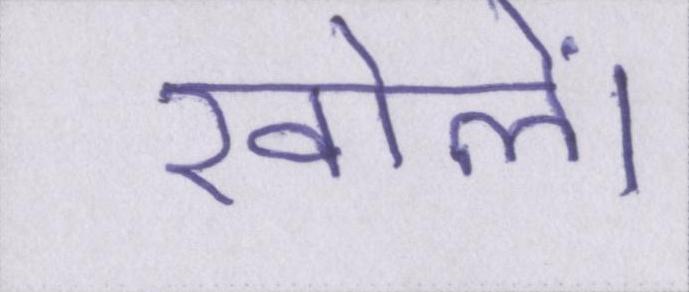 खोलें।